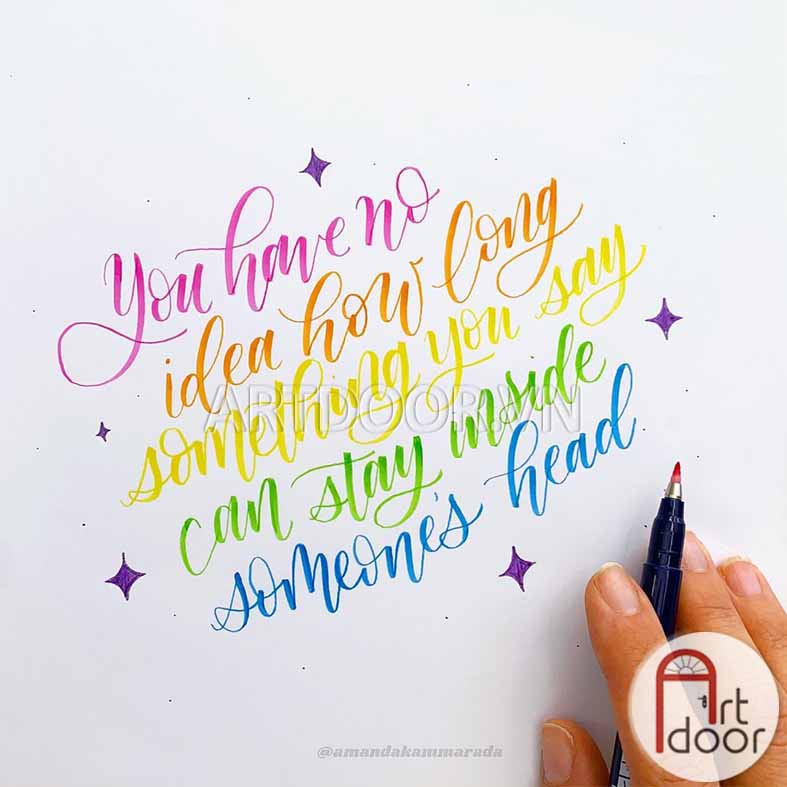 You have no
idea how long
something you say
ARTDOOR.VN
can stay inside
someone's head
Art
door
@amandakammarada